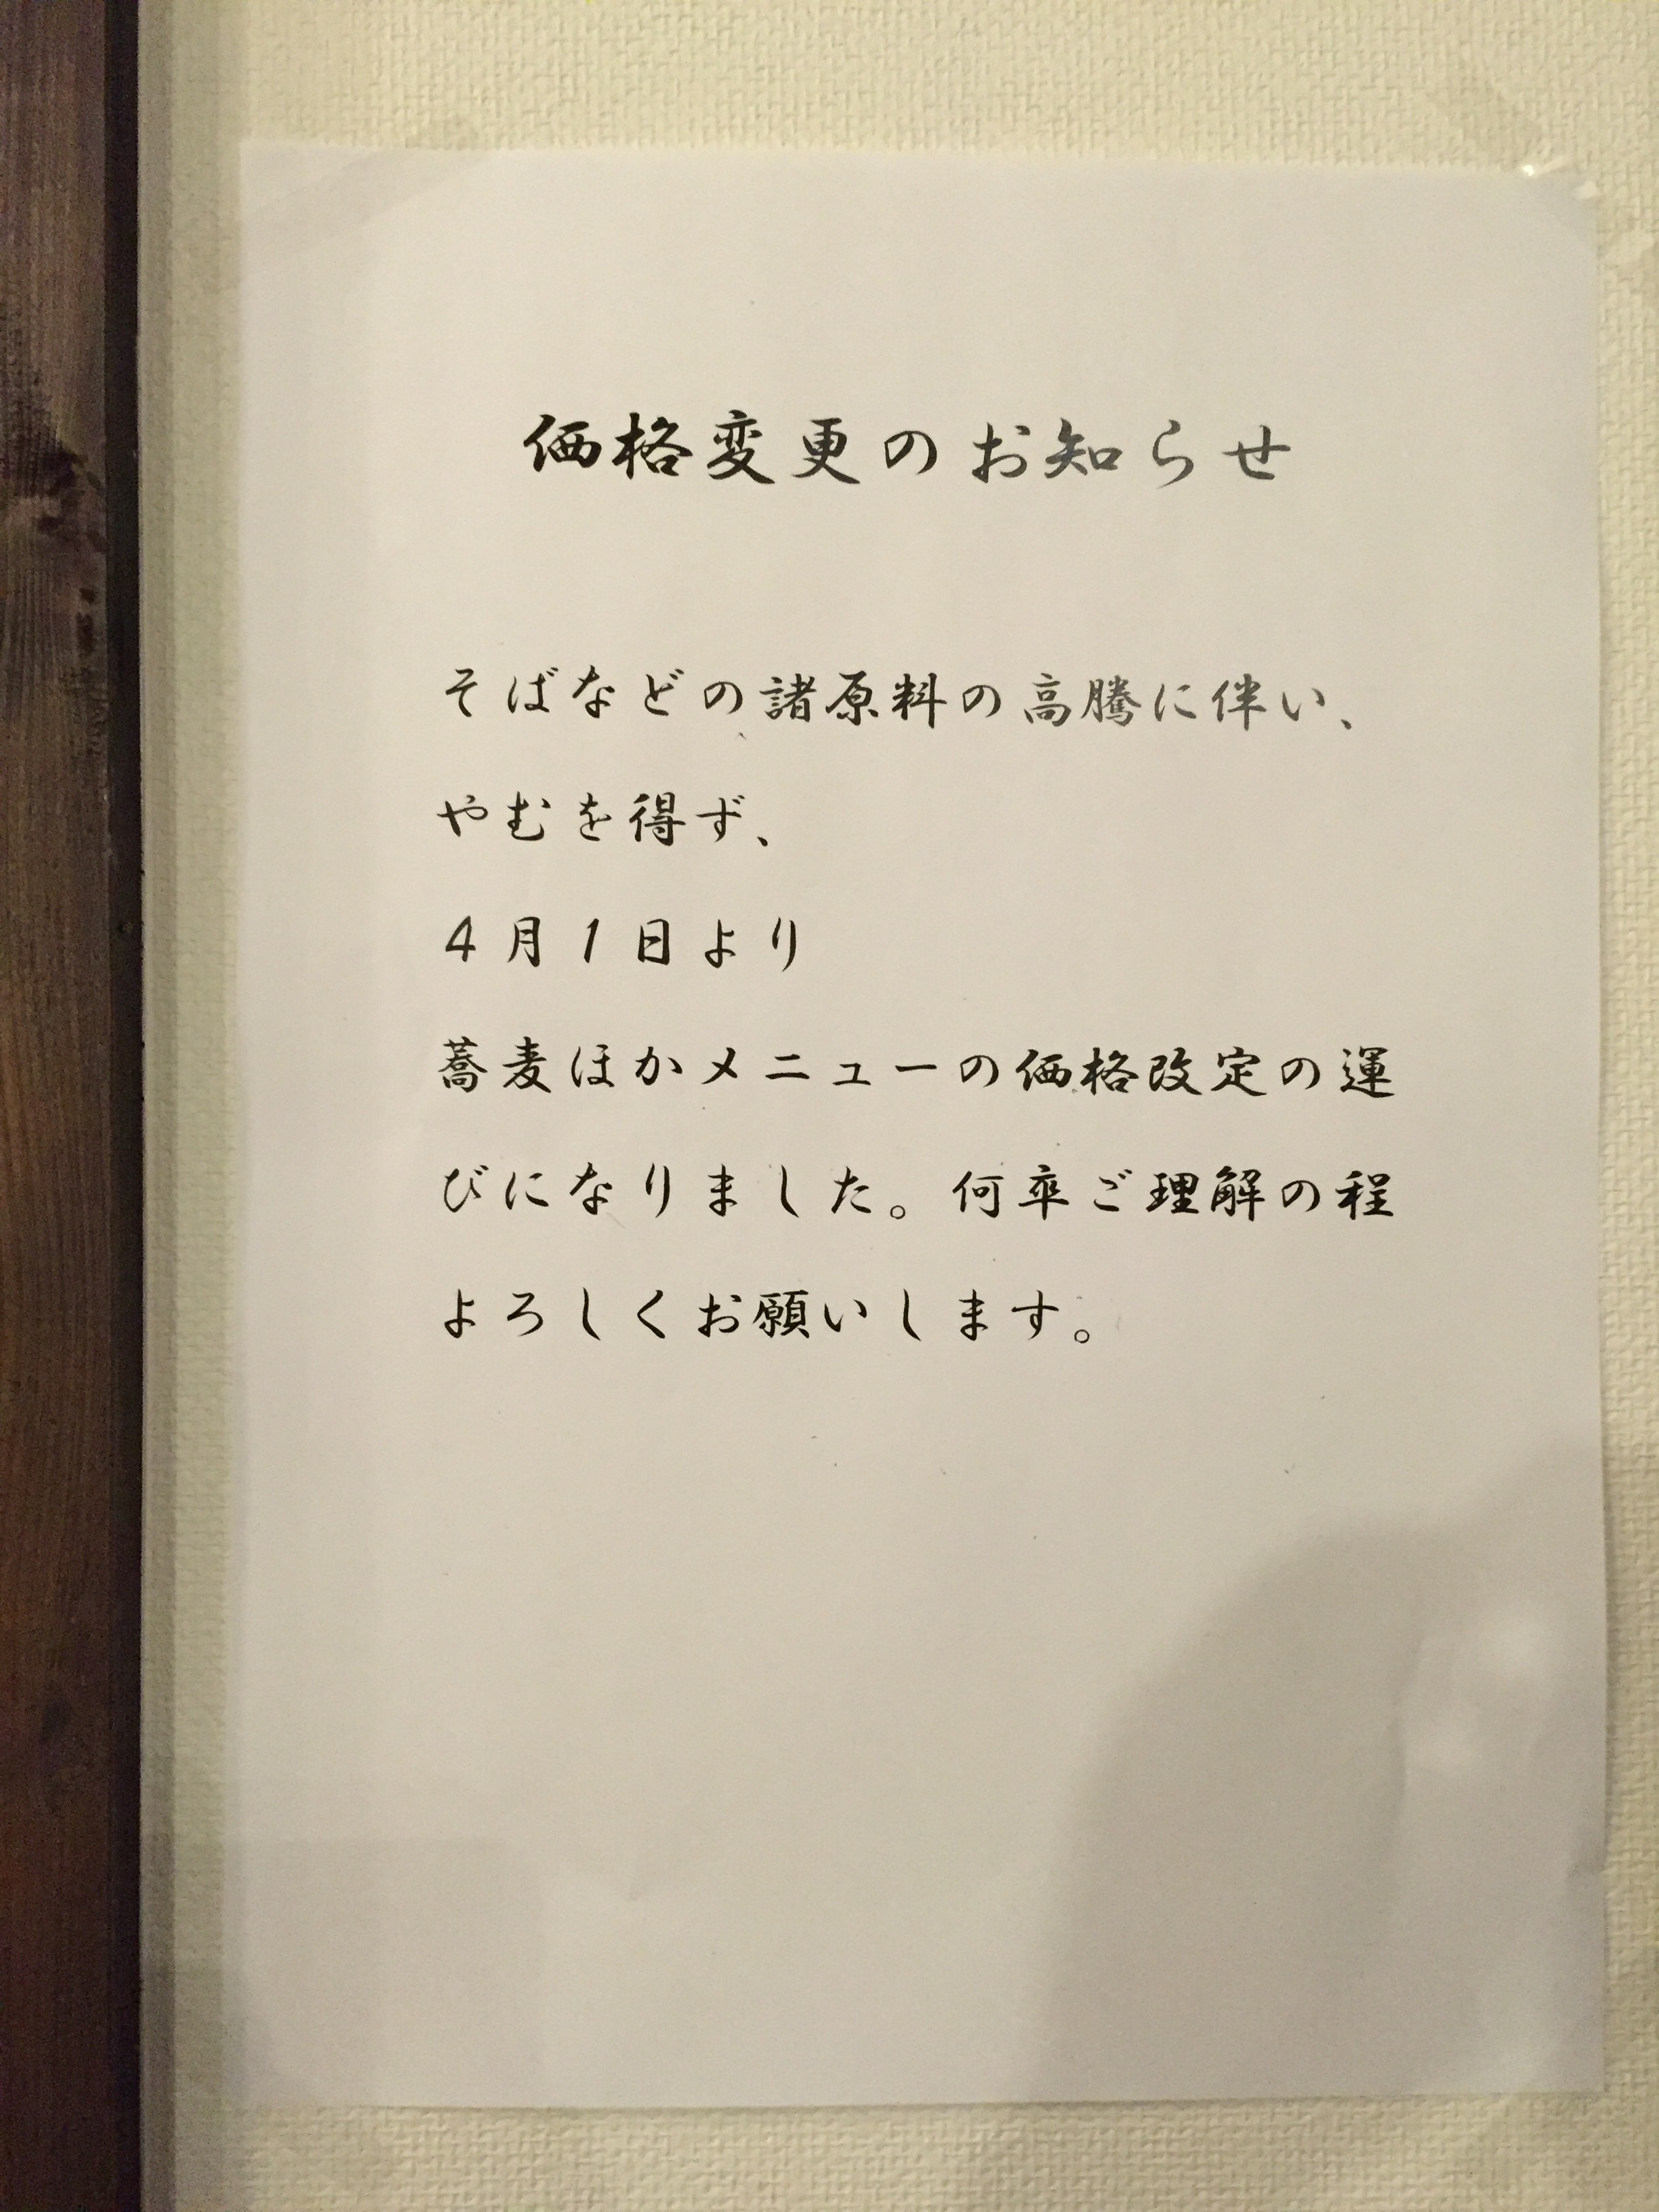 価格変更のお知らせ
そばなどの諸原料の高騰に伴い、
やむを得ず、
４月１日より
蕎麦ほかメニューの価格改定の運
びになりました。何卒ご理解の程
よろしくお願いします。